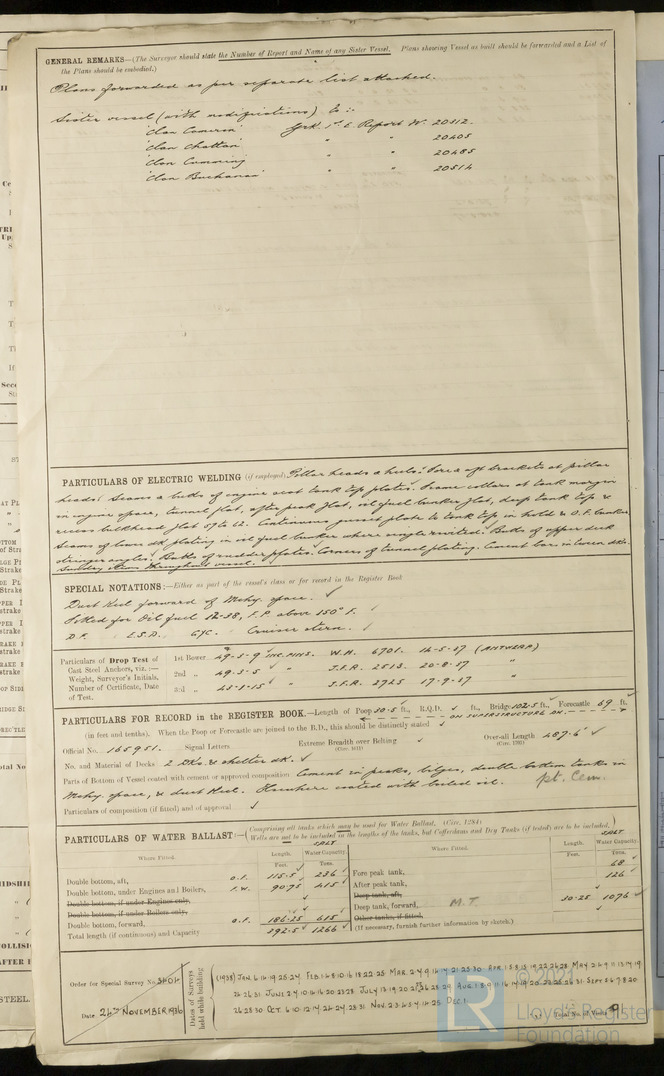 GENERAL REMARKS—(The Surveyor should state the Number of Report and Name of any Sister Vessel. Plans showing Vessel as built should be forwarded and a List of
the Plans should be embodied.)
Plans forwarded as per separate list attached.
Sister vessel (with modifications) to :-
"Clan Cameron" Grk. 1st E. Report No. 20312.
"Clan Chattan" " " 20405
"Clan Cumming" " " 20485
"Clan Buchanan" " " 20514
PARTICULARS OF ELECTRIC WELDING (if employed) Pillar heads & heels. Fore & aft brackets at pillar
heads. Seams & butts of engine seat tank top plates. Frame collars at tank margin
in engine space, tunnel flat, after peak flat, oil fuel bunker flat, deep tank top &
recess bulkhead flat 57 to 62. Continuous gusset plate to tank top in hold & O.F. bunker
Seams of lower dk plating in oil fuel bunker where single riveted. Butts of upper deck
stringer angles. Butts of rudder plates. Corners of tunnel plating. Cement bars in lower dks.
Sundry items throughout vessel.
SPECIAL NOTATIONS:—Either as part of the vessel's class or for record in the Register Book
Duct Keel forward of Mchy. space.
Fitted for Oil fuel 12-38, F.P. above 150° F.
D.F. E.S.D. Gyc. Cruiser stern.
Particulars of Drop Test of
Cast Steel Anchors, viz. :—
Weight, Surveyor's Initials,
Number of Certificate, Date
of Test.
1st Bower 49-3-9 INC. PINS. W.H. 6701. 14-5-37 (ANTWERP)
2nd " 49-3-5 " J.F.R. 2513. 20-8-37 "
3rd " 43-1-15 " J.F.R. 2725 17-9-37 "
PARTICULARS FOR RECORD in the REGISTER BOOK.—Length of Poop 30.5 ft., R.Q.D. ft., Bridge 102.5 ft., Forecastle 69 ft.
ON SUPERSTRUCTURE DK.
(in feet and tenths). When the Poop or Forecastle are joined to the B.D., this should be distinctly stated
Official No. 165951. Signal Letters Extreme Breadth over Belting Over-all Length 487.6
No. and Material of Decks 2 Dks. & shelter dk.
Parts of Bottom of Vessel coated with cement or approved composition Cement in peaks, bilges, double bottom tanks in
Mchy. space, & duct Keel. Elsewhere coated with boiled oil. pt. Cem.
Particulars of composition (if fitted) and of approval
PARTICULARS OF WATER BALLAST:—(Comprising all tanks which may be used for Water Ballast. (Circ. 1284)
Wells are not to be included in the lengths of the tanks, but Cofferdams and Dry Tanks (if tested) are to be included.)
Where Fitted. Length. Feet. SALT Water Capacity. Tons.
Double bottom, aft, O.F. 115.5 236
Double bottom, under Engines and Boilers, F.W. 90.75 415
Double bottom, if under Engines only,
Double bottom, if under Boilers only,
Double bottom, forward, O.F. 186.25 615
Total length (if continuous) and Capacity 392.5 1266
Where Fitted. Length. Feet. SALT Water Capacity. Tons.
Fore peak tank, 68
After peak tank, 126
Deep tank, aft,
Deep tank, forward, M.T. 30.25 1076
Other tanks, if fitted,
(If necessary, furnish further information by sketch.)
Order for Special Survey No. 3401
Date 24th NOVEMBER 1936
Dates of Surveys held while building
(1938) JAN. 6.14.19.25.27. FEB. 1.4.8.10.16.18.22.25 MAR. 2.4.9.16.14.21.25.30 APR. 1.5.8.13.19.22.26.28 MAY 2.6.9.11.13.14.19
© 2021
Lloyd's Register
Foundation
LR
Total No. of Visits